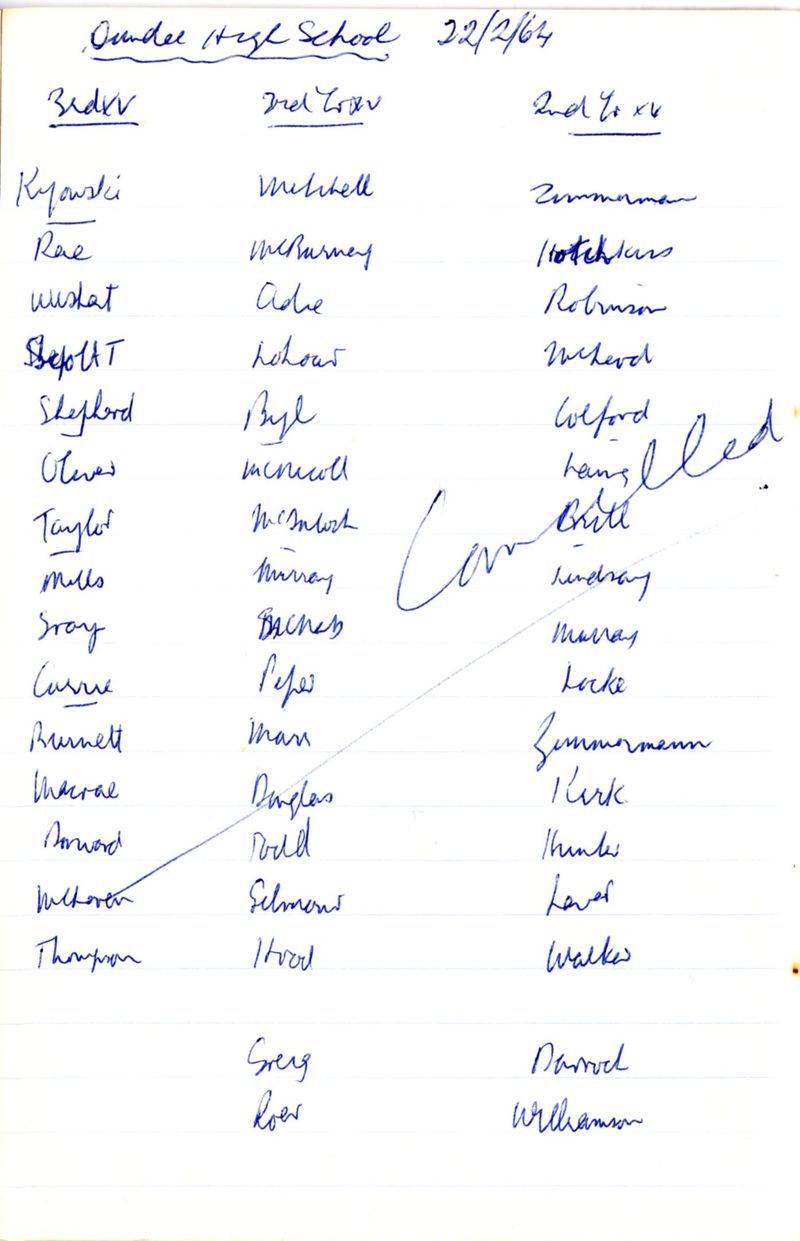 Dundee High School 22/2/64
3rd XV 3rd Yr XV 2nd Yr XV
Kyowski Mitchell Zimmerman
Rae McBurney Hotchkiss
Wishart Adie Robinson
Robinson
McLeod
Shepherd Byl Colford
Oliver McNicoll Laing
Cancelled
Taylor McIntosh Britt
Mills Murray Lindsay
Gray McNab Murray
Currie Peper Locke
Burnett Marr Zimmermann
Macrae Douglas Kirk
Dorward Todd Hunter
McLaren Gilmour Laver
Thompson Hood Walker
Greig Darroch
Roer Williamson